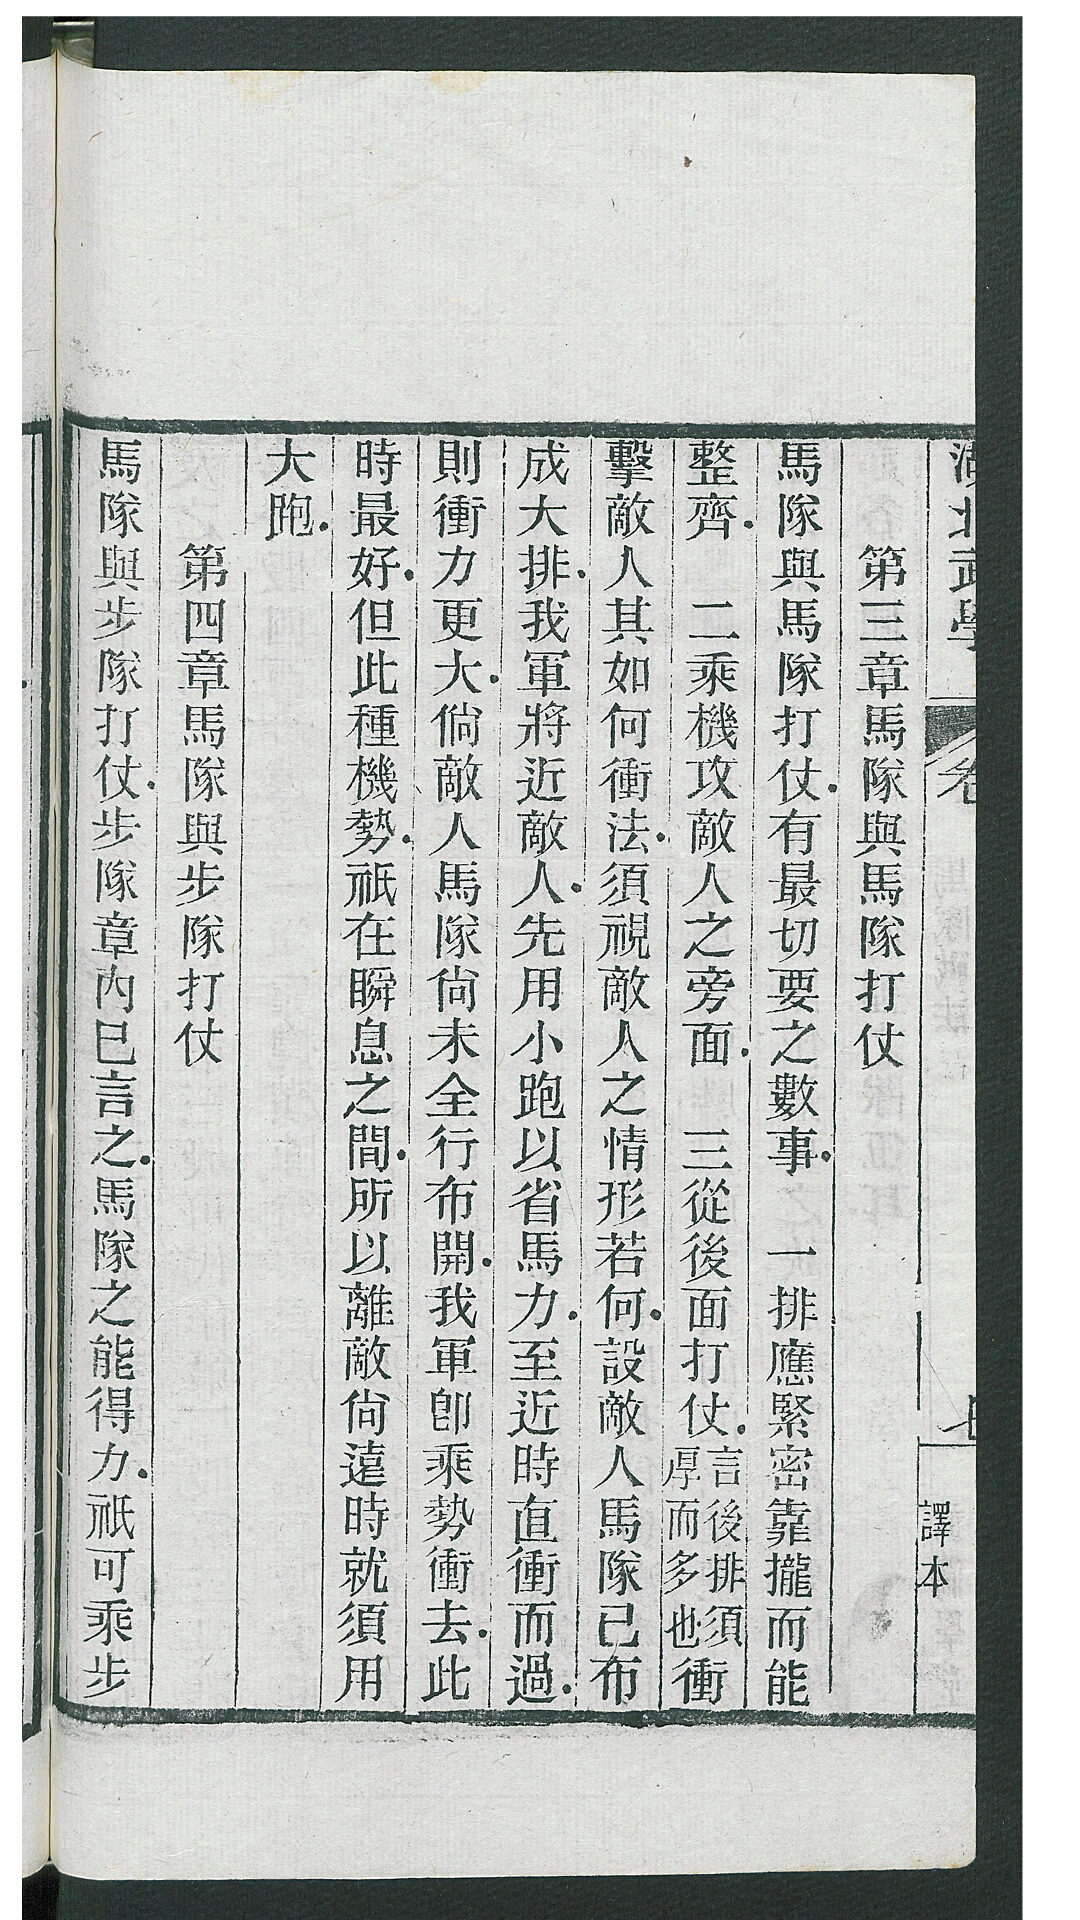 北武學
卷
七
譯本
第三章馬隊與馬隊打仗
馬隊與馬隊打仗.有最切要之數事. 一排應緊密靠攏而能
整齊. 二乘機攻敵人之旁面. 三從後面打仗.言後排須厚而多也衝
擊敵人其如何衝法.須視敵人之情形若何.設敵人馬隊已布
成大排.我軍將近敵人.先用小跑以省馬力.至近時直衝而過.
則衝力更大.倘敵人馬隊尙未全行布開.我軍卽乘勢衝去.此
時最好.但此種機勢.祇在瞬息之間.所以離敵尙遠時就須用
大跑.
第四章馬隊與步隊打仗
馬隊與步隊打仗.步隊章內已言之.馬隊之能得力.祇可乘步